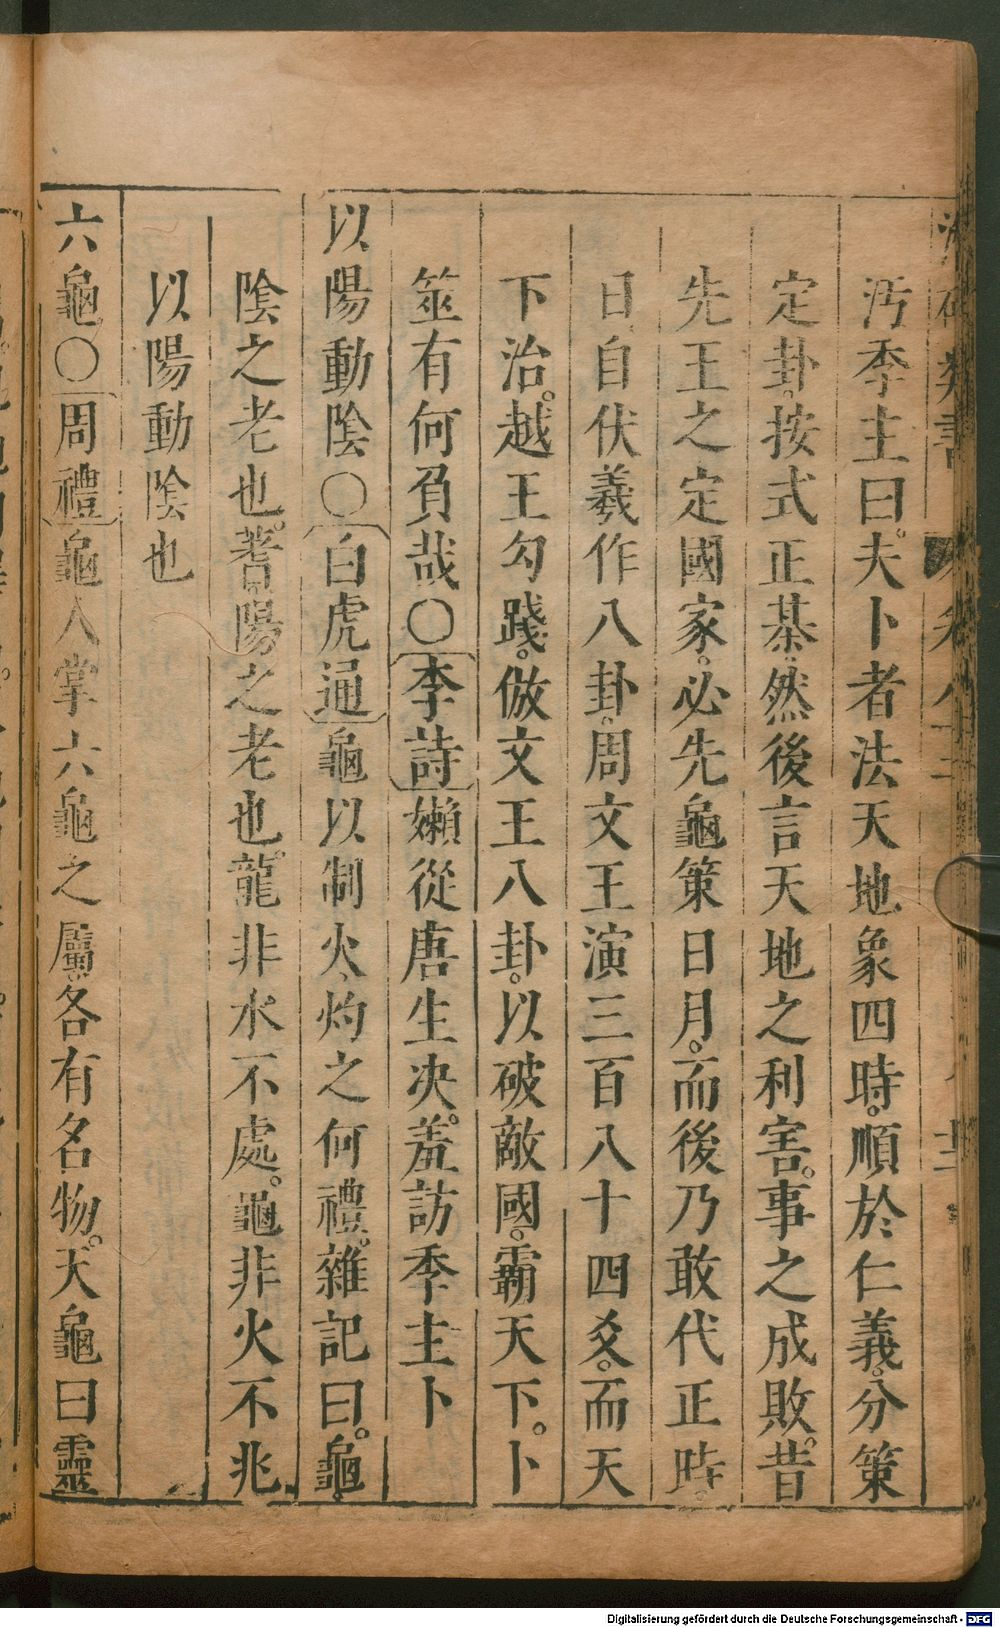 汚季主曰。夫卜者法天地象四時。順於仁義。分策
定卦。按式正棊。然後言天地之利害。事之成敗。昔
先王之定國家。必先龜策日月。而後乃敢代正時。
日自伏羲作八卦。周文王演三百八十四爻。而天
下治。越王勾踐。倣文王八卦。以破敵國。霸天下。卜
筮有何負哉〇李詩嬾從唐生决。羞訪季主卜
以陽動陰〇白虎通龜以制火、灼之何禮。雜記曰。龜。
陰之老也。蓍。陽之老也。龍非水不處。龜非火不兆
以陽動陰也
六龜〇周禮龜人掌六龜之屬。各有名物。天龜曰靈
Digitalisierung gefördert durch die Deutsche Forschungsgemeinschaft - DFG